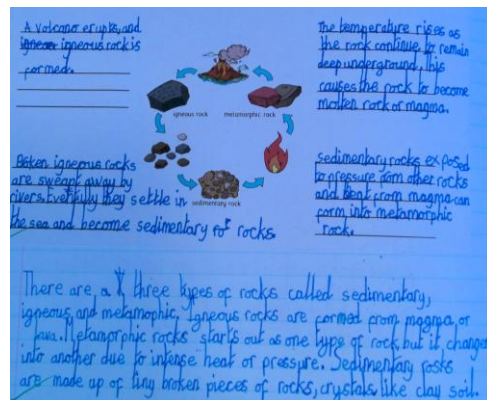 A volcano erupts, and
igneour igneous rock is
formed.
The temperature rises as
the rock continue to remain
deep underground, this
causes the rock to become
molten rock or magma.
igneous rock
metamorphic rock
sedimentary rock
Broken igneous rocks
are swept away by
rivers. Eventfully they settle in
the sea and become sedimentary rocks
Sedimentary rocks exposed
to pressure from other rocks
and heat from magma can
form into metamorphic
rock.
There are a three types of rocks called sedimentary,
igneous, and metamophic. Igneous rocks are formed from magma or
lava. Metamorphic rocks starts out as one type of rock, but it changes
into another due to intense heat or pressure. Sedimentary rosks
are made up of tiny broken pieces of rocks, crystals like clay soil.